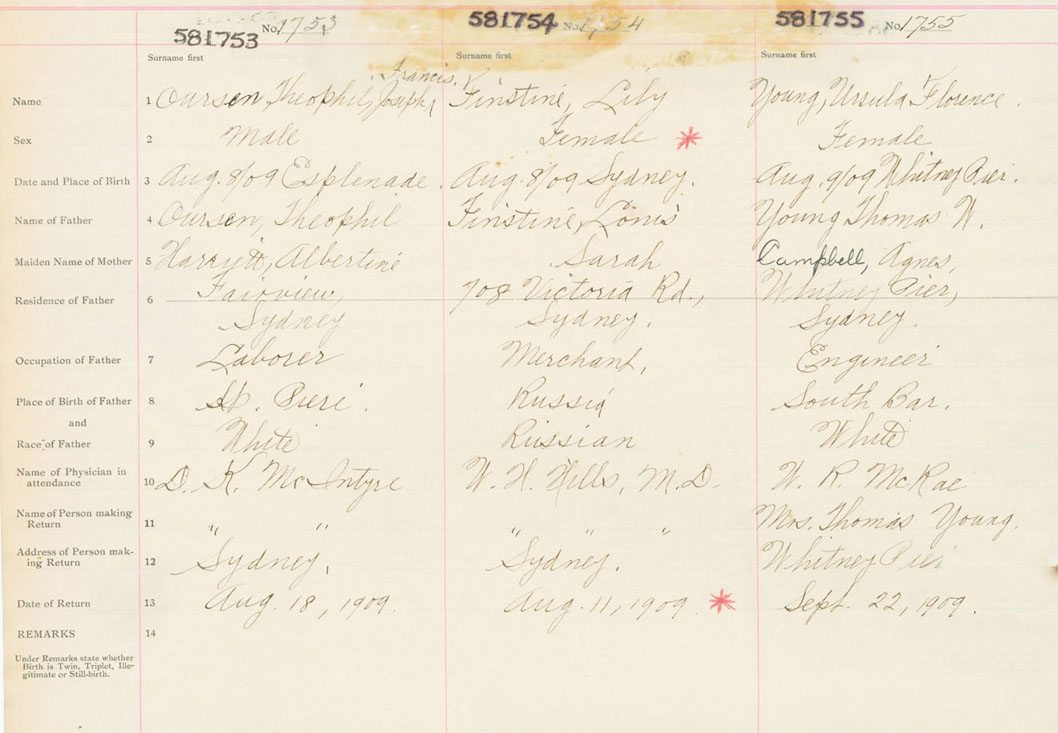 581753 No. 1753 581754 No. 1754 581755 No. 1755
Surname first Surname first Surname first
Francis,
Name 1 Oursen, Theophil, Joseph, Finstine, Lily Young, Ursula Florence.
Sex 2 Male Female * Female
Date and Place of Birth 3 Aug. 8/09 Esplenade. Aug. 8/09 Sydney. Aug. 9/09 Whitney Pier.
Name of Father 4 Oursen, Theophil Finstine, Louis Young Thomas W.
Maiden Name of Mother 5 Albertine Sarah Campbell, Agnes,
Residence of Father 6 Fairview, 708 Victoria Rd., Whitney Pier,
Sydney Sydney. Sydney.
Occupation of Father 7 Laborer Merchant, Engineer
Place of Birth of Father 8 St. Pieri. Russia South Bar.
and
Race of Father 9 White Russian White
Name of Physician in
attendance 10 D. K. McIntyre W. H. Hells, M.D. W. R. McRae
Name of Person making
Return 11 " " " " " Mrs. Thomas Young.
Address of Person mak-
ing Return 12 Sydney, Sydney. Whitney Pier
Date of Return 13 Aug. 18, 1909. Aug. 11, 1909. * Sept. 22, 1909.
REMARKS 14
Under Remarks state whether
Birth is Twin, Triplet, Ille-
gitimate or Still-birth.